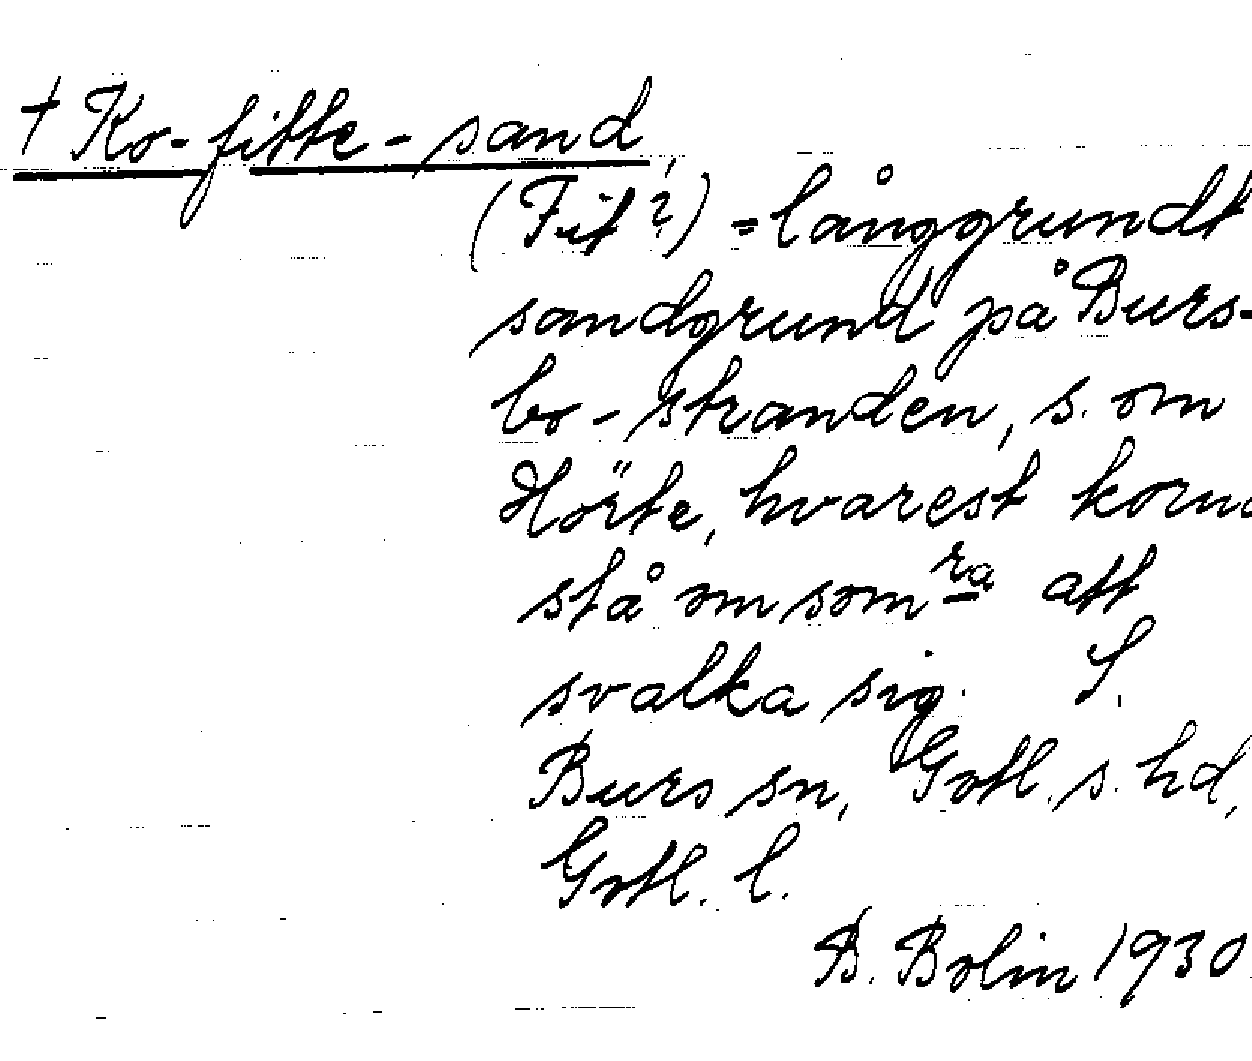 † Ko-fitte-sand,
(Fit?) = långgrundt
sandgrund på Burs-
bo-stranden, s. om
Hörte, hvarest korna
stå om somra att
svalka sig. S.
Burs sn, Gotl. s. hd,
Gotl. l.
B. Bolin 1930.